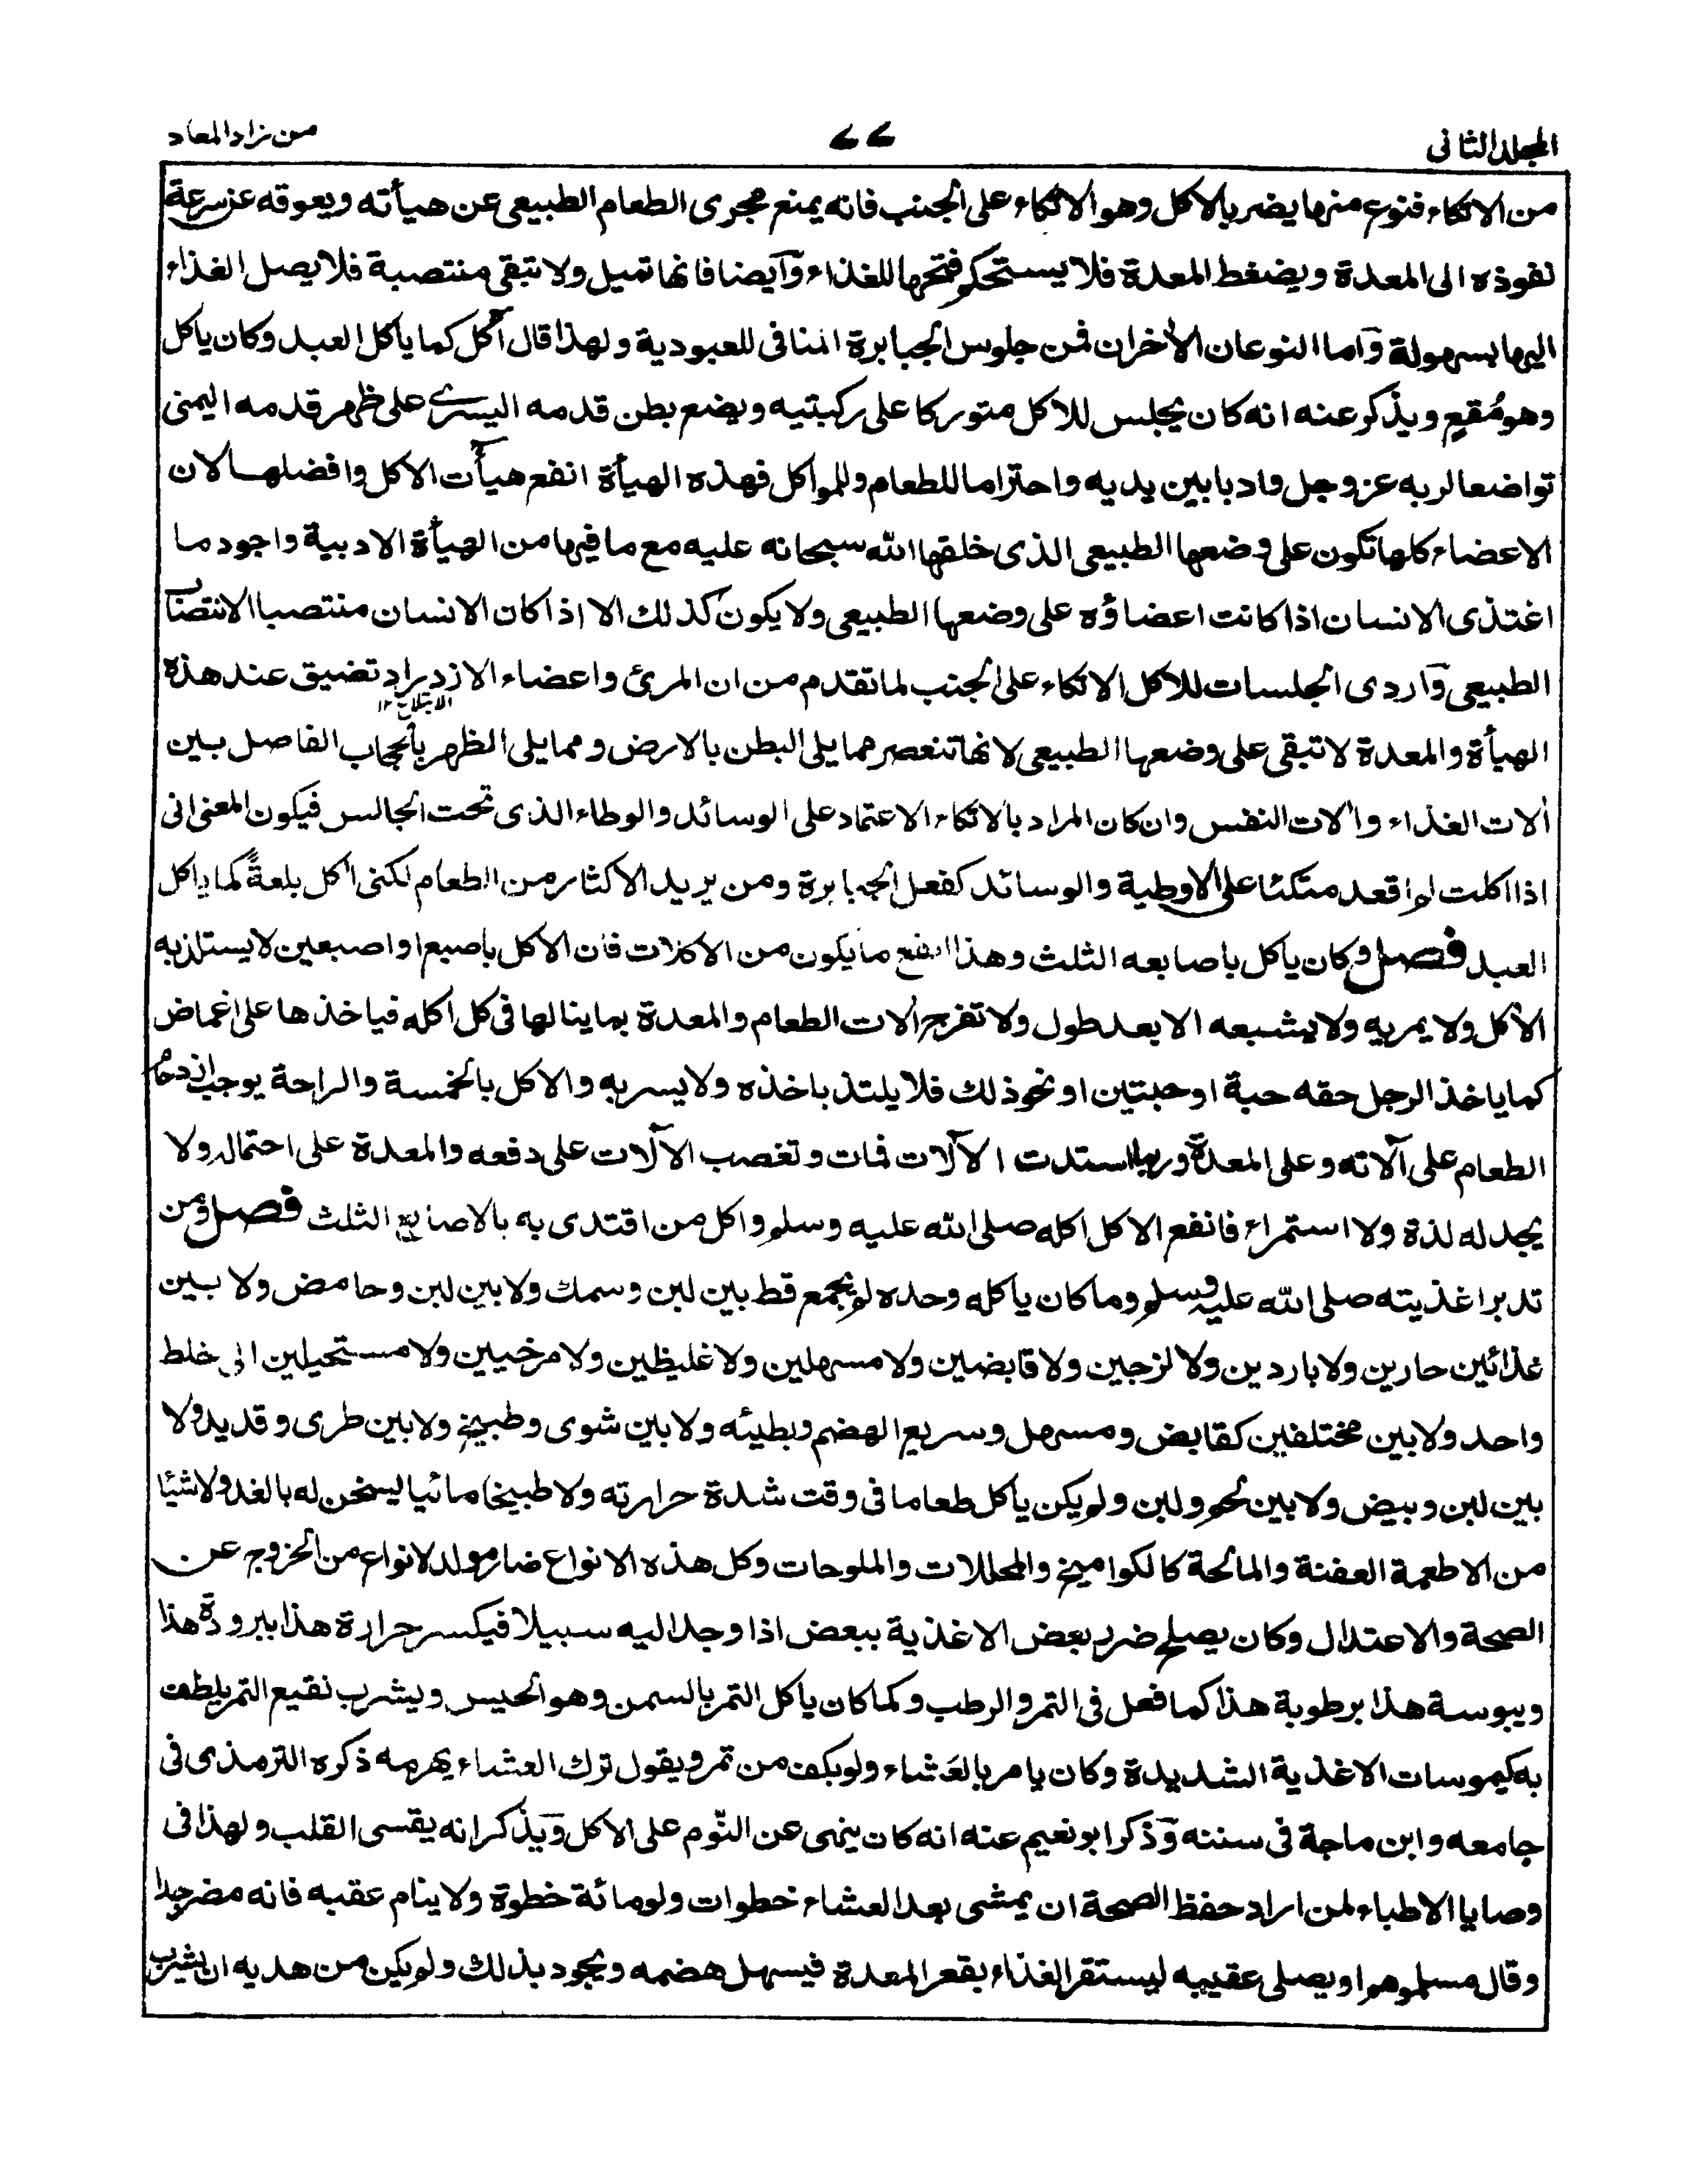 المجلد الثانى
٧٧
من زاد المعاد
من الاتكاء فنوع منها يضر بالاكل وهو الاتكاء على الجنب فانه يمنع مجرى الطعام الطبيعى عن هيأته ويعوقه عن سرعة
نفوذه الى المعدة ويضغط المعدة فلا يستحكم فتحها للغذاء وآيضا فانها تميل ولا تبقى منتصبة فلا يصل الغذاء
اليها بسهولة وآما النوعان الاخران فمن جلوس الجبابرة المنافى للعبودية ولهذا قال آكل كما ياكل العبد وكان ياكل
وهو مُقعٍ ويذكر عنه انه كان يجلس للاكل متوركا على ركبتيه ويضع بطن قدمه اليسرى على ظهر قدمه اليمنى
تواضعا لربه عز وجل وادبا بين يديه واحتراما للطعام وللمواكل فهذه الهيأة انفع هيأت الاكل وافضلها لان
الاعضاء كلها تكون على وضعها الطبيعى الذى خلقها الله سبحانه عليه مع ما فيها من الهيأة الادبية واجود ما
اغتذى الانسان اذا كانت اعضاؤه على وضعها الطبيعى ولا يكون كذلك الا اذا كان الانسان منتصبا الانتصاب
الطبيعى وآردى الجلسات للاكل الاتكاء على الجنب لما تقدم من ان المرئ واعضاء الازدراد تضيق عند هذه
الابتلاع ١٢
الهيأة والمعدة لا تبقى على وضعها الطبيعى لانها تنعصر مما يلى البطن بالارض ومما يلى الظهر بالحجاب الفاصل بين
ألات الغذاء وألات النفس وان كان المراد بالاتكاء الاعتماد على الوسائد والوطاء الذى تحت الجالس فيكون المعنى انى
اذا اكلت لم اقعد متكئا على الاوطية والوسائد كفعل الجبابرة ومن يريد الاكثار من الطعام لكنى أكل بلعةً كما ياكل
العبد فصل وكان ياكل باصابعه الثلث وهذا انفع ما يكون من الاكلات فان الاكل باصبع او اصبعين لا يستلذ به
الأكل ولا يمريه ولا يشبعه الا بعد طول ولا تفرح ألات الطعام والمعدة بما ينالها فى كل اكله فياخذها على اغماض
كما ياخذ الرجل حقه حبة او حبتين او نحو ذلك فلا يلتذ باخذه ولا يسر به والاكل بالخمسة والراحة يوجب ازدحام
الطعام على آلاته وعلى المعدة وربما استدت الآلات فمات وتغصب الآلات على دفعه والمعدة على احتماله ولا
يجد له لذة ولا استمراء فانفع الاكل اكله صلى الله عليه وسلم واكل من اقتدى به بالاصابع الثلث فصل ومن
تدبر اغذيته صلى الله عليه وسلم وما كان ياكله وحده لم يجمع قط بين لبن وسمك ولا بين لبن وحامض ولا بين
غذائين حارين ولا باردين ولا لزجين ولا قابضين ولا مسهلين ولا غليظين ولا مرخيين ولا مستحيلين الى خلط
واحد ولا بين مختلفين كقابض ومسهل وسريع الهضم وبطيئه ولا بين شوى وطبيخ ولا بين طرى وقديد ولا
بين لبن وبيض ولا بين لحم ولبن ولم يكن ياكل طعاما فى وقت شدة حرارته ولا طبيخا مائيا ليسخن له بالغد ولا شيئا
من الاطعمة العفنة والمالحة كالكواميخ والمخللات والملوحات وكل هذه الانواع ضار مولد لانواع من الخروج عن
الصحة والاعتدال وكان يصلح ضرر بعض الاغذية ببعض اذا وجد اليه سبيلا فيكسر حرارة هذا ببرودة هذا
ويبوسة هذا برطوبة هذا كما فعل فى التمر والرطب وكما كان ياكل التمر بالسمن وهو الحيس ويشرب نقيع التمر يلطف
به كيموسات الاغذية الشديدة وكان يامر بالعَشاء ولو بكف من تمر ويقول ترك العشاء يهرمه ذكره الترمذى فى
جامعه وابن ماجة فى سننه وَذكر ابو نعيم عنه انه كان ينهى عن النّوم على الاكل وَيذكر انه يقسى القلب ولهذا فى
وصايا الاطباء لمن اراد حفظ الصحة ان يمشى بعد العشاء خطوات ولو مائة خطوة ولا ينام عقبه فانه مضر جدا
وقال مسلموهم او يصلى عقيبه ليستقر الغذاء بقعر المعدة فيسهل هضمه ويجود بذلك ولم يكن من هديه ان يشرب